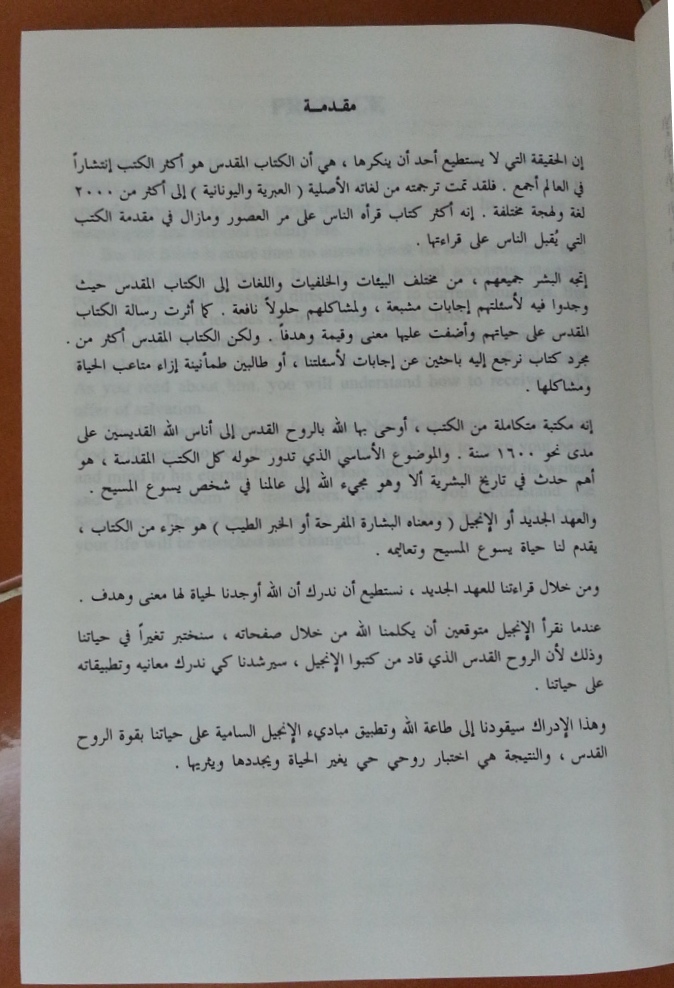 مقدمة
إن الحقيقة التي لا يستطيع أحد أن ينكرها ، هي أن الكتاب المقدس هو أكثر الكتب إنتشاراً
في العالم أجمع . فلقد تمت ترجمته من لغاته الأصلية ( العبرية واليونانية ) إلى أكثر من ٢٠٠٠
لغة ولهجة مختلفة . إنه أكثر كتاب قرأه الناس على مر العصور ومازال في مقدمة الكتب
التي يُقبل الناس على قراءتها .
إتجه البشر جميعهم ، من مختلف البيئات والخلفيات واللغات إلى الكتاب المقدس حيث
وجدوا فيه لأسئلتهم إجابات مشبعة ، ولمشاكلهم حلولاً نافعة . كما أثرت رسالة الكتاب
المقدس على حياتهم وأضفت عليها معنى وقيمة وهدفاً . ولكن الكتاب المقدس أكثر من .
مجرد كتاب نرجع إليه باحثين عن إجابات لأسئلتنا ، أو طالبين طمأنينة إزاء متاعب الحياة
ومشاكلها .
إنه مكتبة متكاملة من الكتب ، أوحى بها الله بالروح القدس إلى أناس الله القديسين على
مدى نحو ١٦٠٠ سنة . والموضوع الأساسي الذي تدور حوله كل الكتب المقدسة ، هو
أهم حدث في تاريخ البشرية ألا وهو مجيء الله إلى عالمنا في شخص يسوع المسيح .
والعهد الجديد أو الإنجيل ( ومعناه البشارة المفرحة أو الخبر الطيب ) هو جزء من الكتاب ،
يقدم لنا حياة يسوع المسيح وتعاليمه .
ومن خلال قراءتنا للعهد الجديد ، نستطيع أن ندرك أن الله أوجدنا لحياة لها معنى وهدف .
عندما نقرأ الإنجيل متوقعين أن يكلمنا الله من خلال صفحاته ، سنختبر تغيراً في حياتنا
وذلك لأن الروح القدس الذي قاد من كتبوا الإنجيل ، سيرشدنا كي ندرك معانيه وتطبيقاته
على حياتنا .
وهذا الإدراك سيقودنا إلى طاعة الله وتطبيق مباديء الإنجيل السامية على حياتنا بقوة الروح
القدس ، والنتيجة هي اختبار روحي حي يغير الحياة ويجددها ويثريها .